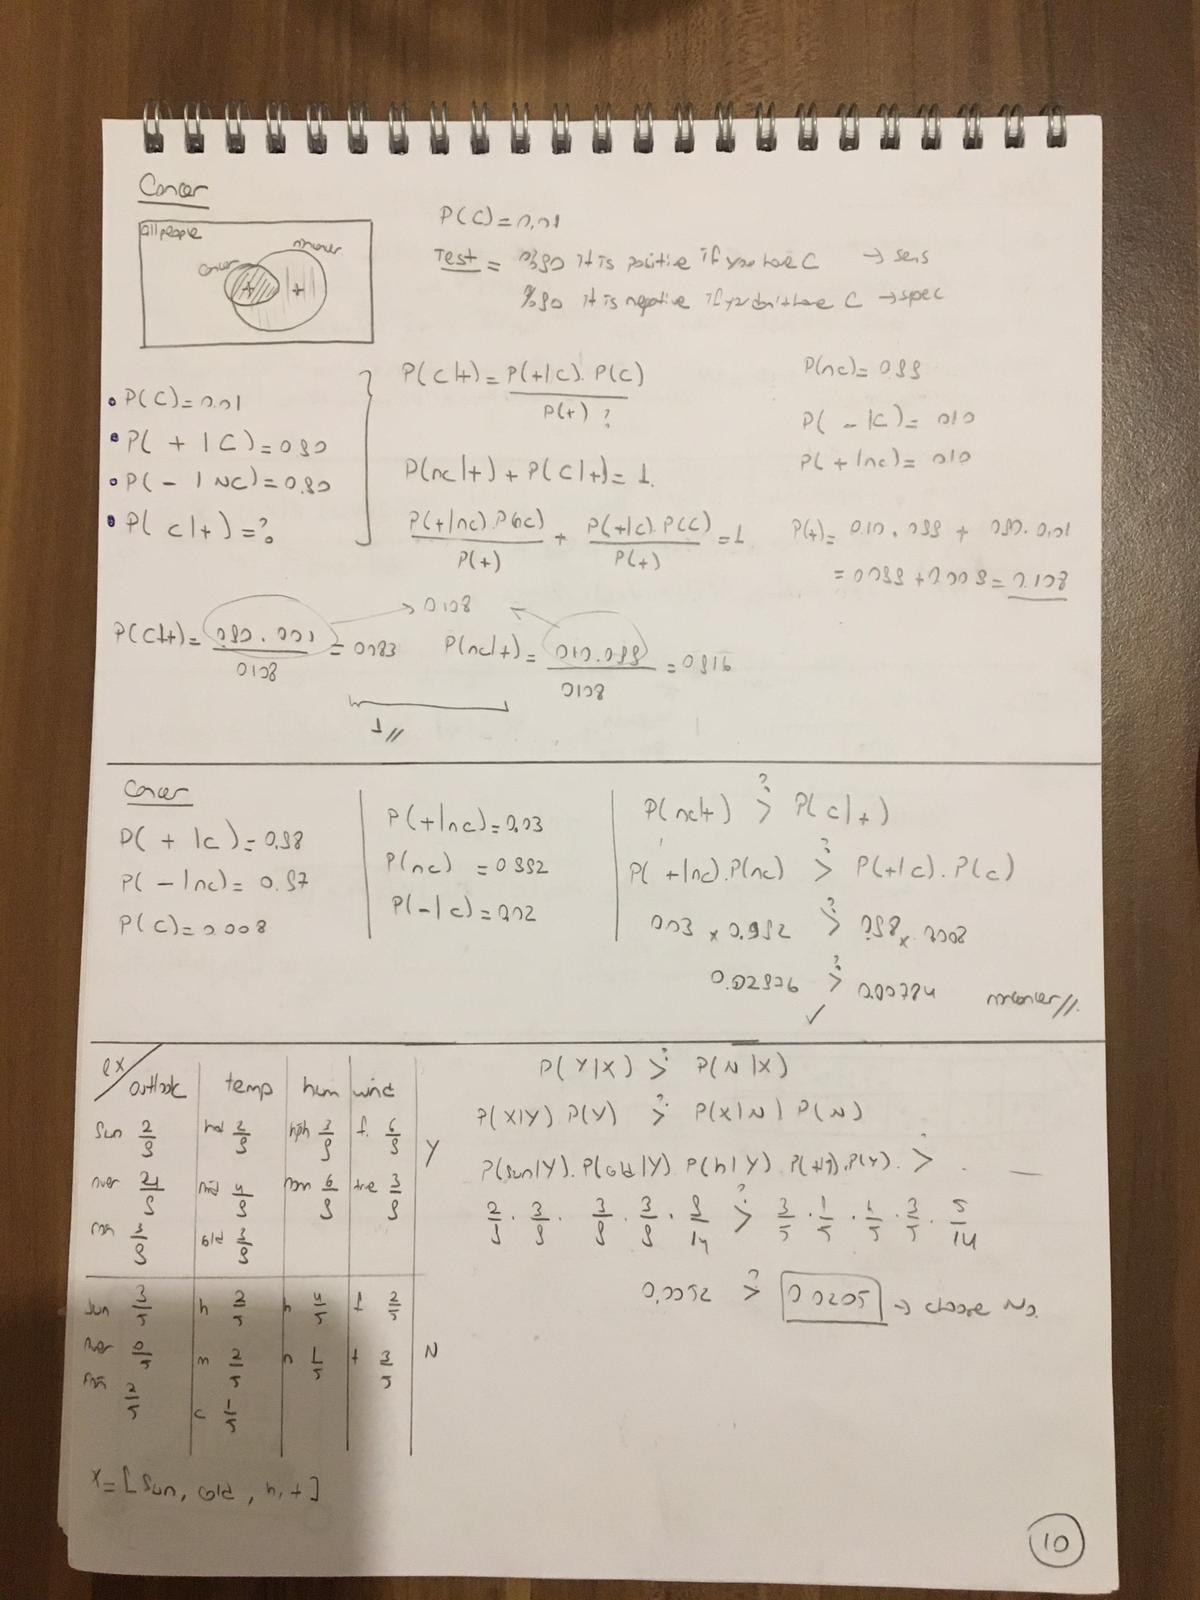 Cancer
all people
cancer
no cancer
+ +
P(C)=0.01
Test = %90 it is positive if you have C → sens
%90 it is negative if you don't have C → spec
• P(C)=0.01
• P( + | C)=0.90
• P( - | NC)=0.90
• P( c|+)=?
P(c|+)= P(+|c). P(c) / P(+) ?
P(nc|+) + P(c|+)=1.
P(+|nc).P(nc) / P(+) + P(+|c).P(c) / P(+) =1
P(nc)=0.99
P( - |c)= 0.10
P( + |nc)= 0.10
P(+)= 0.10 . 0.99 + 0.90. 0.01
= 0.099+0.009=0.108
→ 0.108
P(c|+)= 0.90 . 0.01 / 0.108 = 0.083
P(nc|+)= 0.10.0.99 / 0.108 =0.916
1//
Cancer
P( + |c)=0.98
P( - |nc)= 0.97
P(c)=0.008
P(+|nc)=0.03
P(nc) =0.992
P(-|c)=0.02
P(nc|+) >? P(c|+)
P( +|nc).P(nc) >? P(+|c). P(c)
0.03 x 0.992 >? 0.98 x 0.008
0.02976 >? 0.00784 nocancer//.
✓
ex
outlook temp hum wind
Sun 2/9 hot 2/9 high 3/9 f. 6/9
over 4/9 mild 4/9 nor 6/9 true 3/9
rain 3/9 cold 3/9
Y
Sun 3/5 h 2/5 h 4/5 f 2/5
over 0/5 m 2/5 n 1/5 t 3/5
rain 2/5 c 1/5
N
x = [Sun, cold, h, t]
P(Y|X) >? P(N|X)
P(X|Y) P(Y) >? P(X|N) P(N)
P(sun|Y). P(cold|Y) P(h|Y). P(t|Y).P(Y). >? . —
2/9 . 3/9 . 3/9 . 3/9 . 9/14 >? 3/5 . 1/5 . 4/5 . 3/5 . 5/14
0,0052 >? 0.0205 → choose No.
10